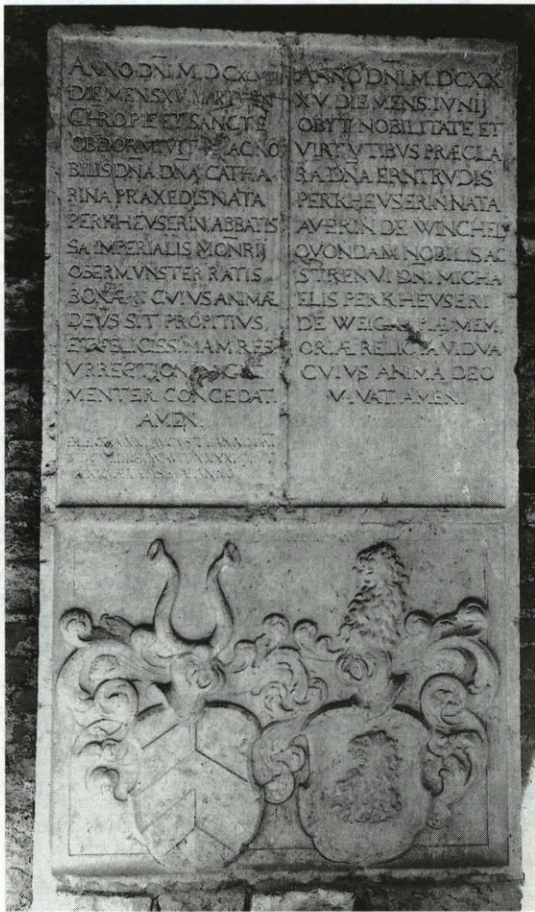 ANNO DNI M. DCXLVIIII
DIE MENS XV MARTY IN
CHRO PIE ET SANCTE
OBDORMIVIT PRÆNO
BILIS DNA DNA CATHA
RINA PRAXEDIS NATA
PERKHEVSERIN ABBATIS
SA IMPERIALIS MONRIJ
OBERMVNSTER RATIS
BONÆ CVIVS ANIMÆ
DEVS SIT PROPITIVS,
ET FELICISSIMAM RES
VRRECTIONE
MENTER CONCEDAT
AMEN.
ANNO DNI. M. DCXX
XV DIE MENS. IVNIJ
OBYT NOBILITATE ET
VIRTVTIBVS PRÆCLA
RA DNA ERNTRVDIS
PERKHEVSERIN NATA
AVERIN DE WINCHEL
QVONDAM NOBILIS AC
STRENVI DNI MICHA
ELIS PERKHEVSERI
DE WEIG PIÆ MEM
ORIÆ RELICTA VIDVA
CVIVS ANIMA DEO
VIVAT AMEN.